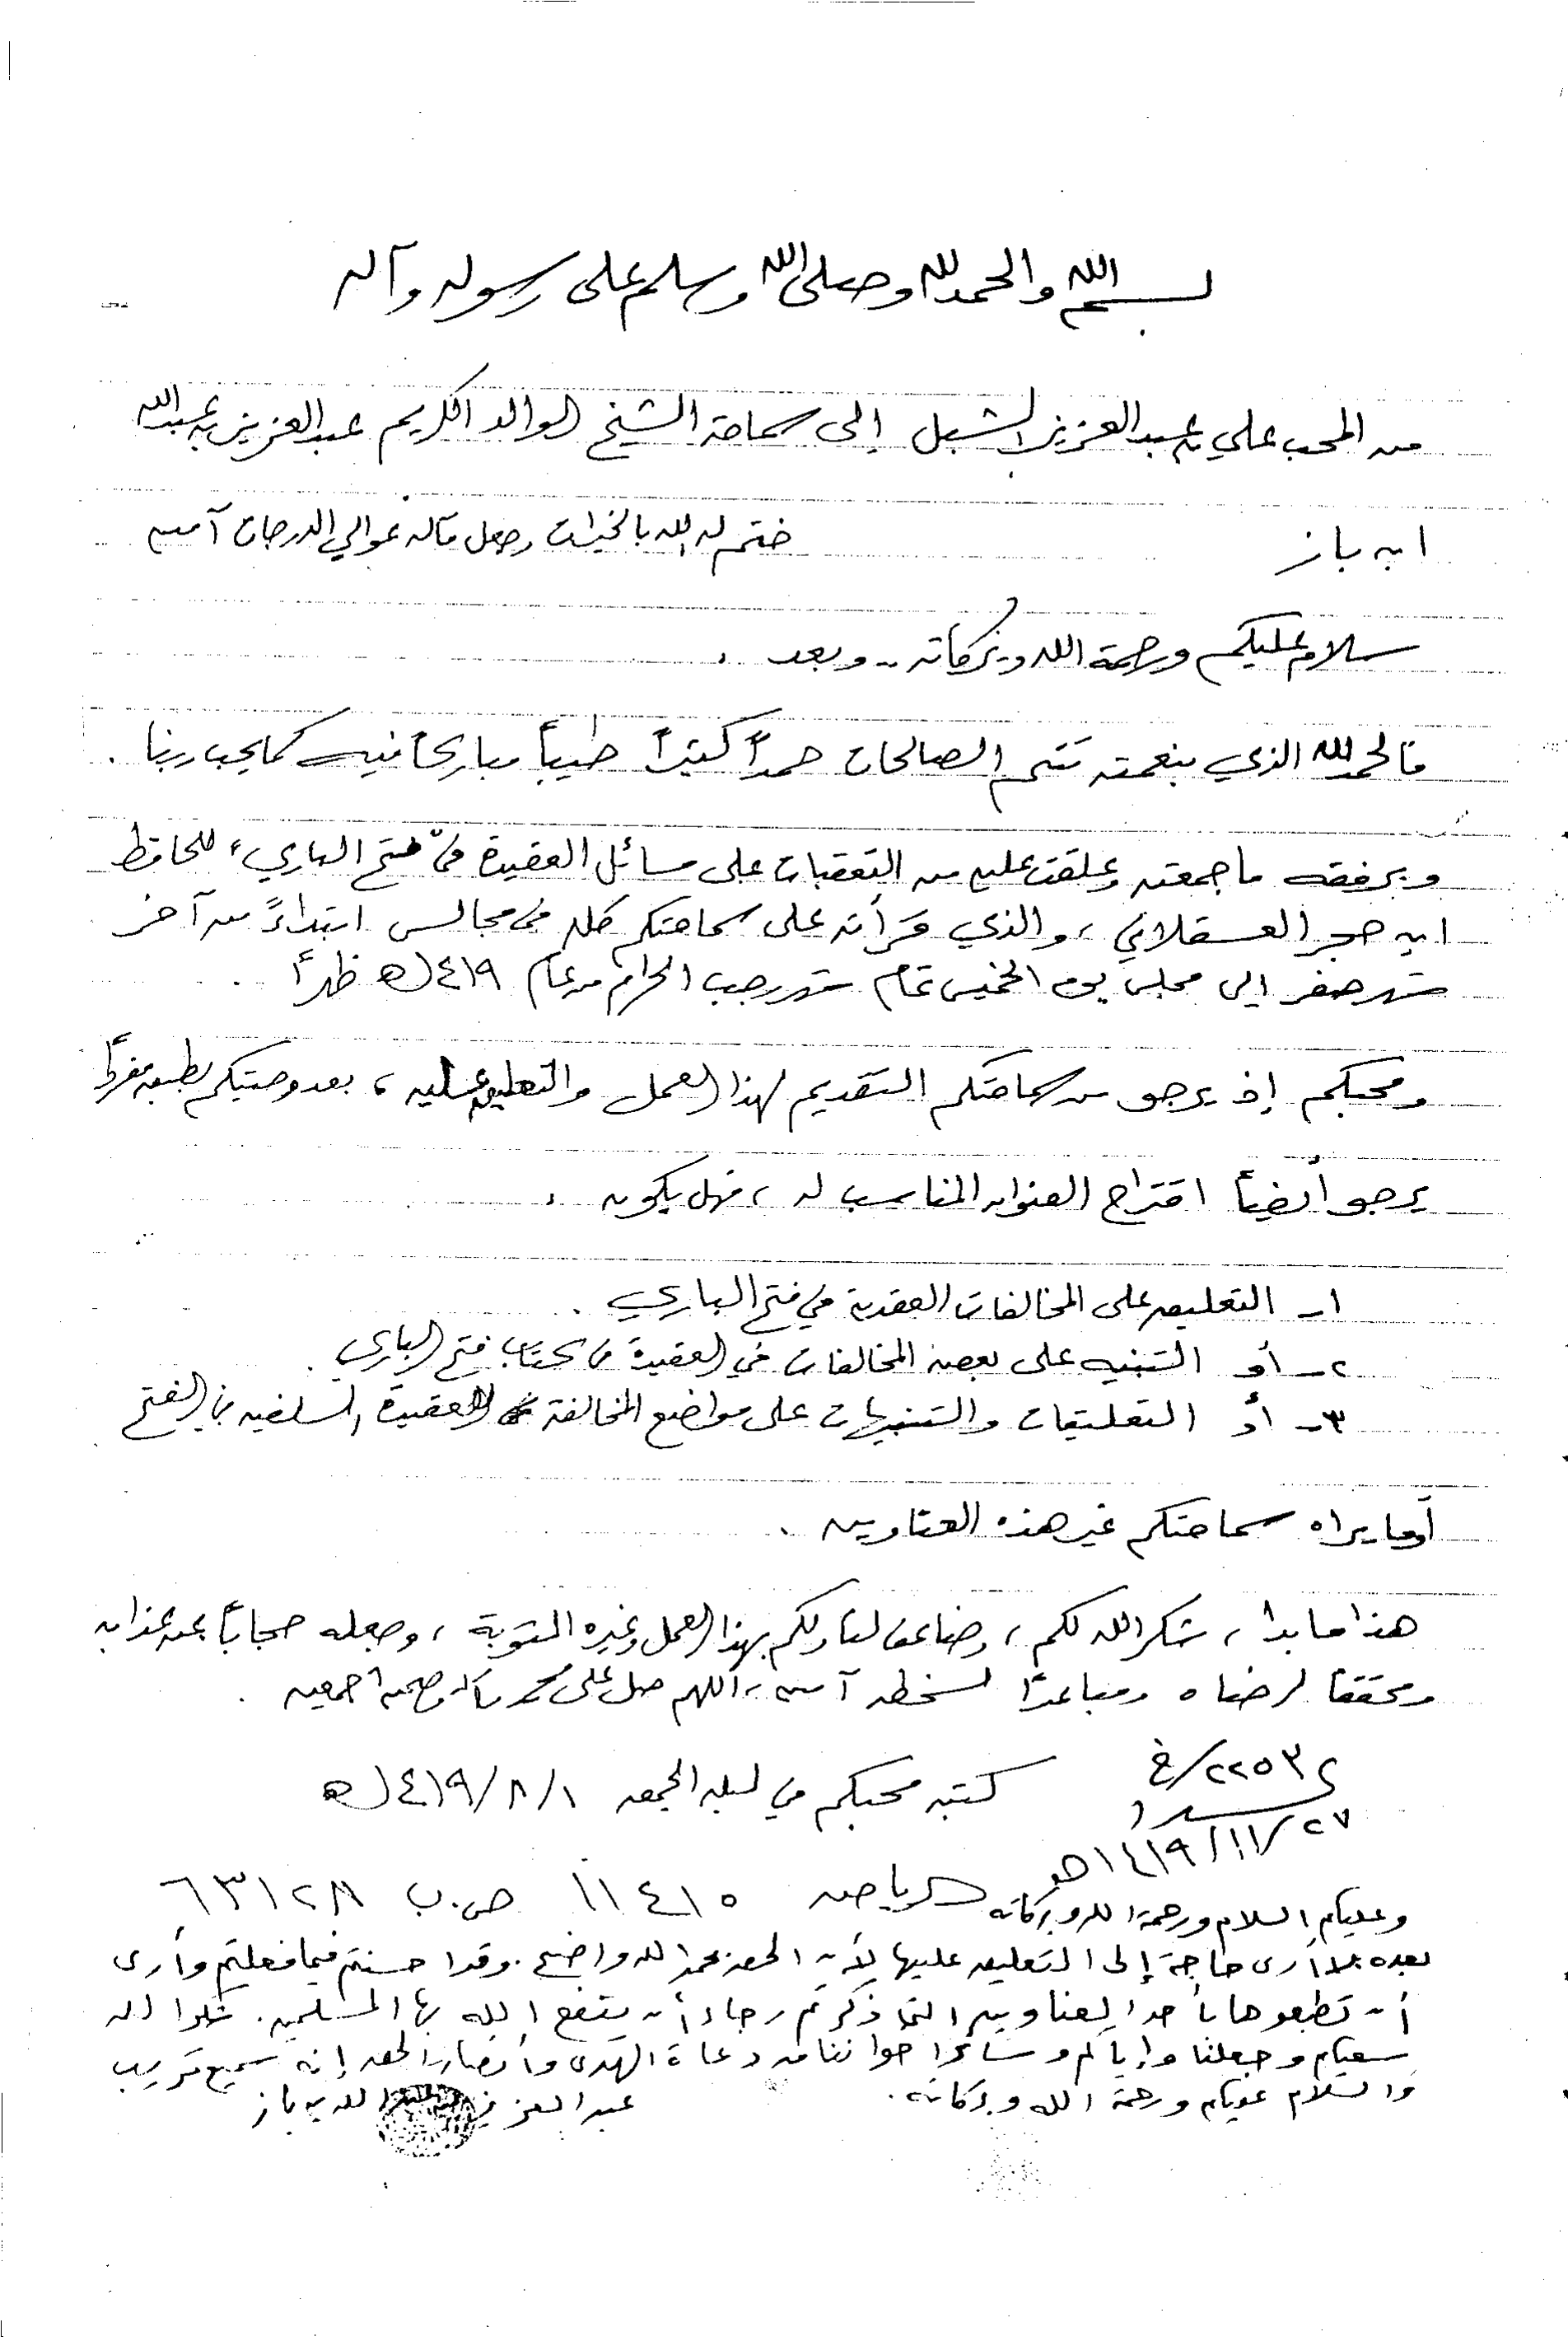 بسم الله والحمد لله وصلى الله وسلم على رسوله وآله
من المحب علي بن عبدالعزيز الشبل إلى سماحة الشيخ الوالد الكريم عبدالعزيز بن عبدالله
ابن باز ختم له الله بالخيرات وجعل مآله عوالي الدرجات آمين
سلام عليكم ورحمة الله وبركاته .. وبعد ،
فالحمد لله الذي بنعمته تتم الصالحات حمداً كثيراً طيباً مباركاً فيه كما يحب ربنا .
وبرفقه ما جمعته وعلقت عليه من التعقبات على مسائل العقيدة في "فتح الباري" للحافظ
ابن حجر العسقلاني ، والذي قرأته على سماحتكم كله في مجالس ابتداءً من آخر
شهر صفر إلى مجلس يوم الخميس تمام شهر رجب الحرام من عام ١٤١٩هـ ظهراً .
ومحبكم إذ يرجو من سماحتكم التقديم لهذا العمل والتعليق عليه ، بعد وصيتكم بطبعه مفرداً
يرجو أيضاً اقتراح العنوان المناسب له ، فهل يكون ،
١ـ التعليق على المخالفات العقدية في فتح الباري .
٢ـ أو التنبيه على بعض المخالفات في العقيدة في كتاب فتح الباري .
٣ـ أو التعليقات والتنبيهات على مواضع المخالفة للعقيدة السلفية في الفتح
أو ما يراه سماحتكم غير هذه العناوين .
هذا ما بدا ، شكر الله لكم ، وضاعف لنا ولكم بهذا العمل وغيره المثوبة ، وجعله حجاباً عن عذابه
ومحققاً لرضاه ومباعداً لسخطه آمين ، اللهم صل على محمد وآله وصحبه أجمعين .
٢٢٥٣/خ
كتبه محبكم في ليلة الجمعة ١/٨/١٤١٩هـ
٢٧/١١/١٤١٩هـ
الرياض ١١٤١٥ ص.ب ٦٣١٢٨
وعليكم السلام ورحمة الله وبركاته
بعده لا أرى حاجة إلى التعليق عليها لأن الحق بحمد الله واضح . وقد أحسنتم فيما فعلتم وأرى
أن تطبعوها بأحد العناوين التي ذكرتم رجاء أن ينفع الله بها المسلمين . شكر الله
سعيكم وجعلنا وإياكم وسائر إخواننا من دعاة الهدى وأنصار الحق إنه سميع قريب
والسلام عليكم ورحمة الله وبركاته .
عبد العزيز بن عبد الله بن باز